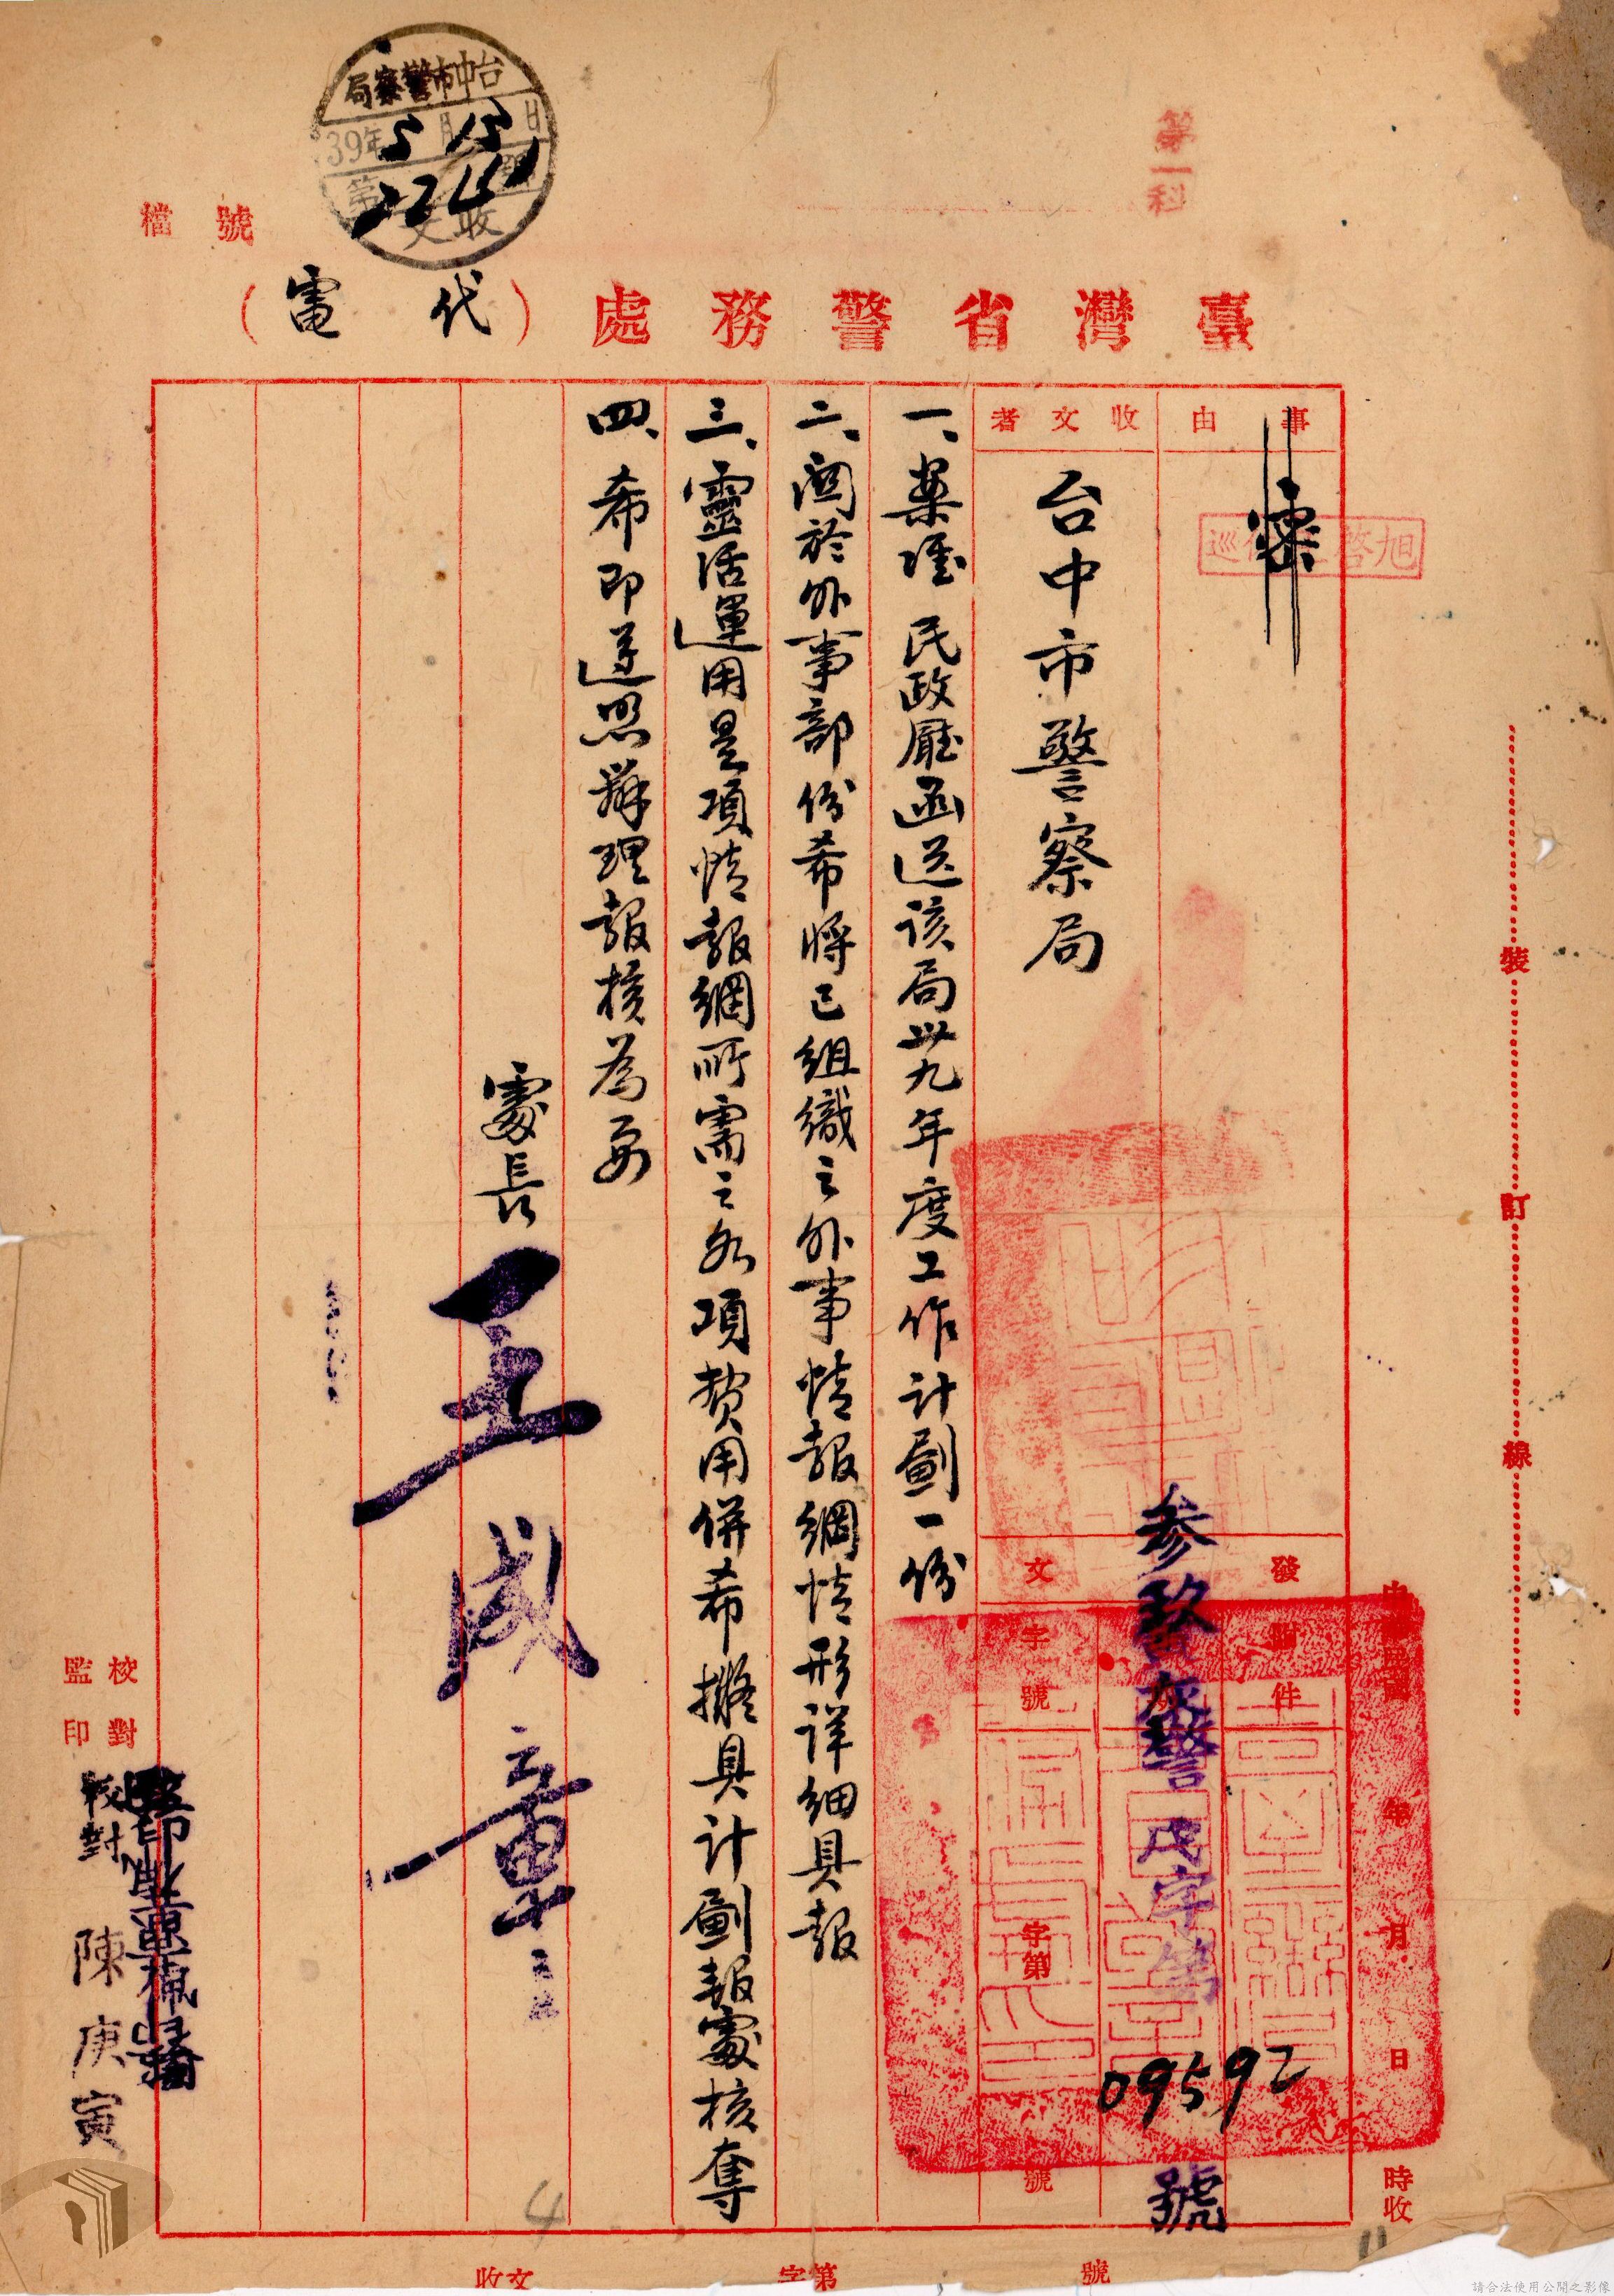 台中市警察局
39年5月13日
收文
第一科
檔號
臺灣省警務處（代電）
事由
收文者
台中市警察局
一、案准 民政廳函送該局卅九年度工作計劃一份
二、關於外事部份希將已組織之外事情報網情形詳細具報
三、靈活運用是項情報網所需之各項費用併希擬具計劃報處核奪
四、希即遵照辦理報核為要
處長 王成章
發文
附件
字號
字第
號
參玖
警
戊字第
09592
號
年
月
日
時收
裝
訂
線
校對
監印
校對 陳庚寅
收文
字第
號
4
請合法使用公開之影像